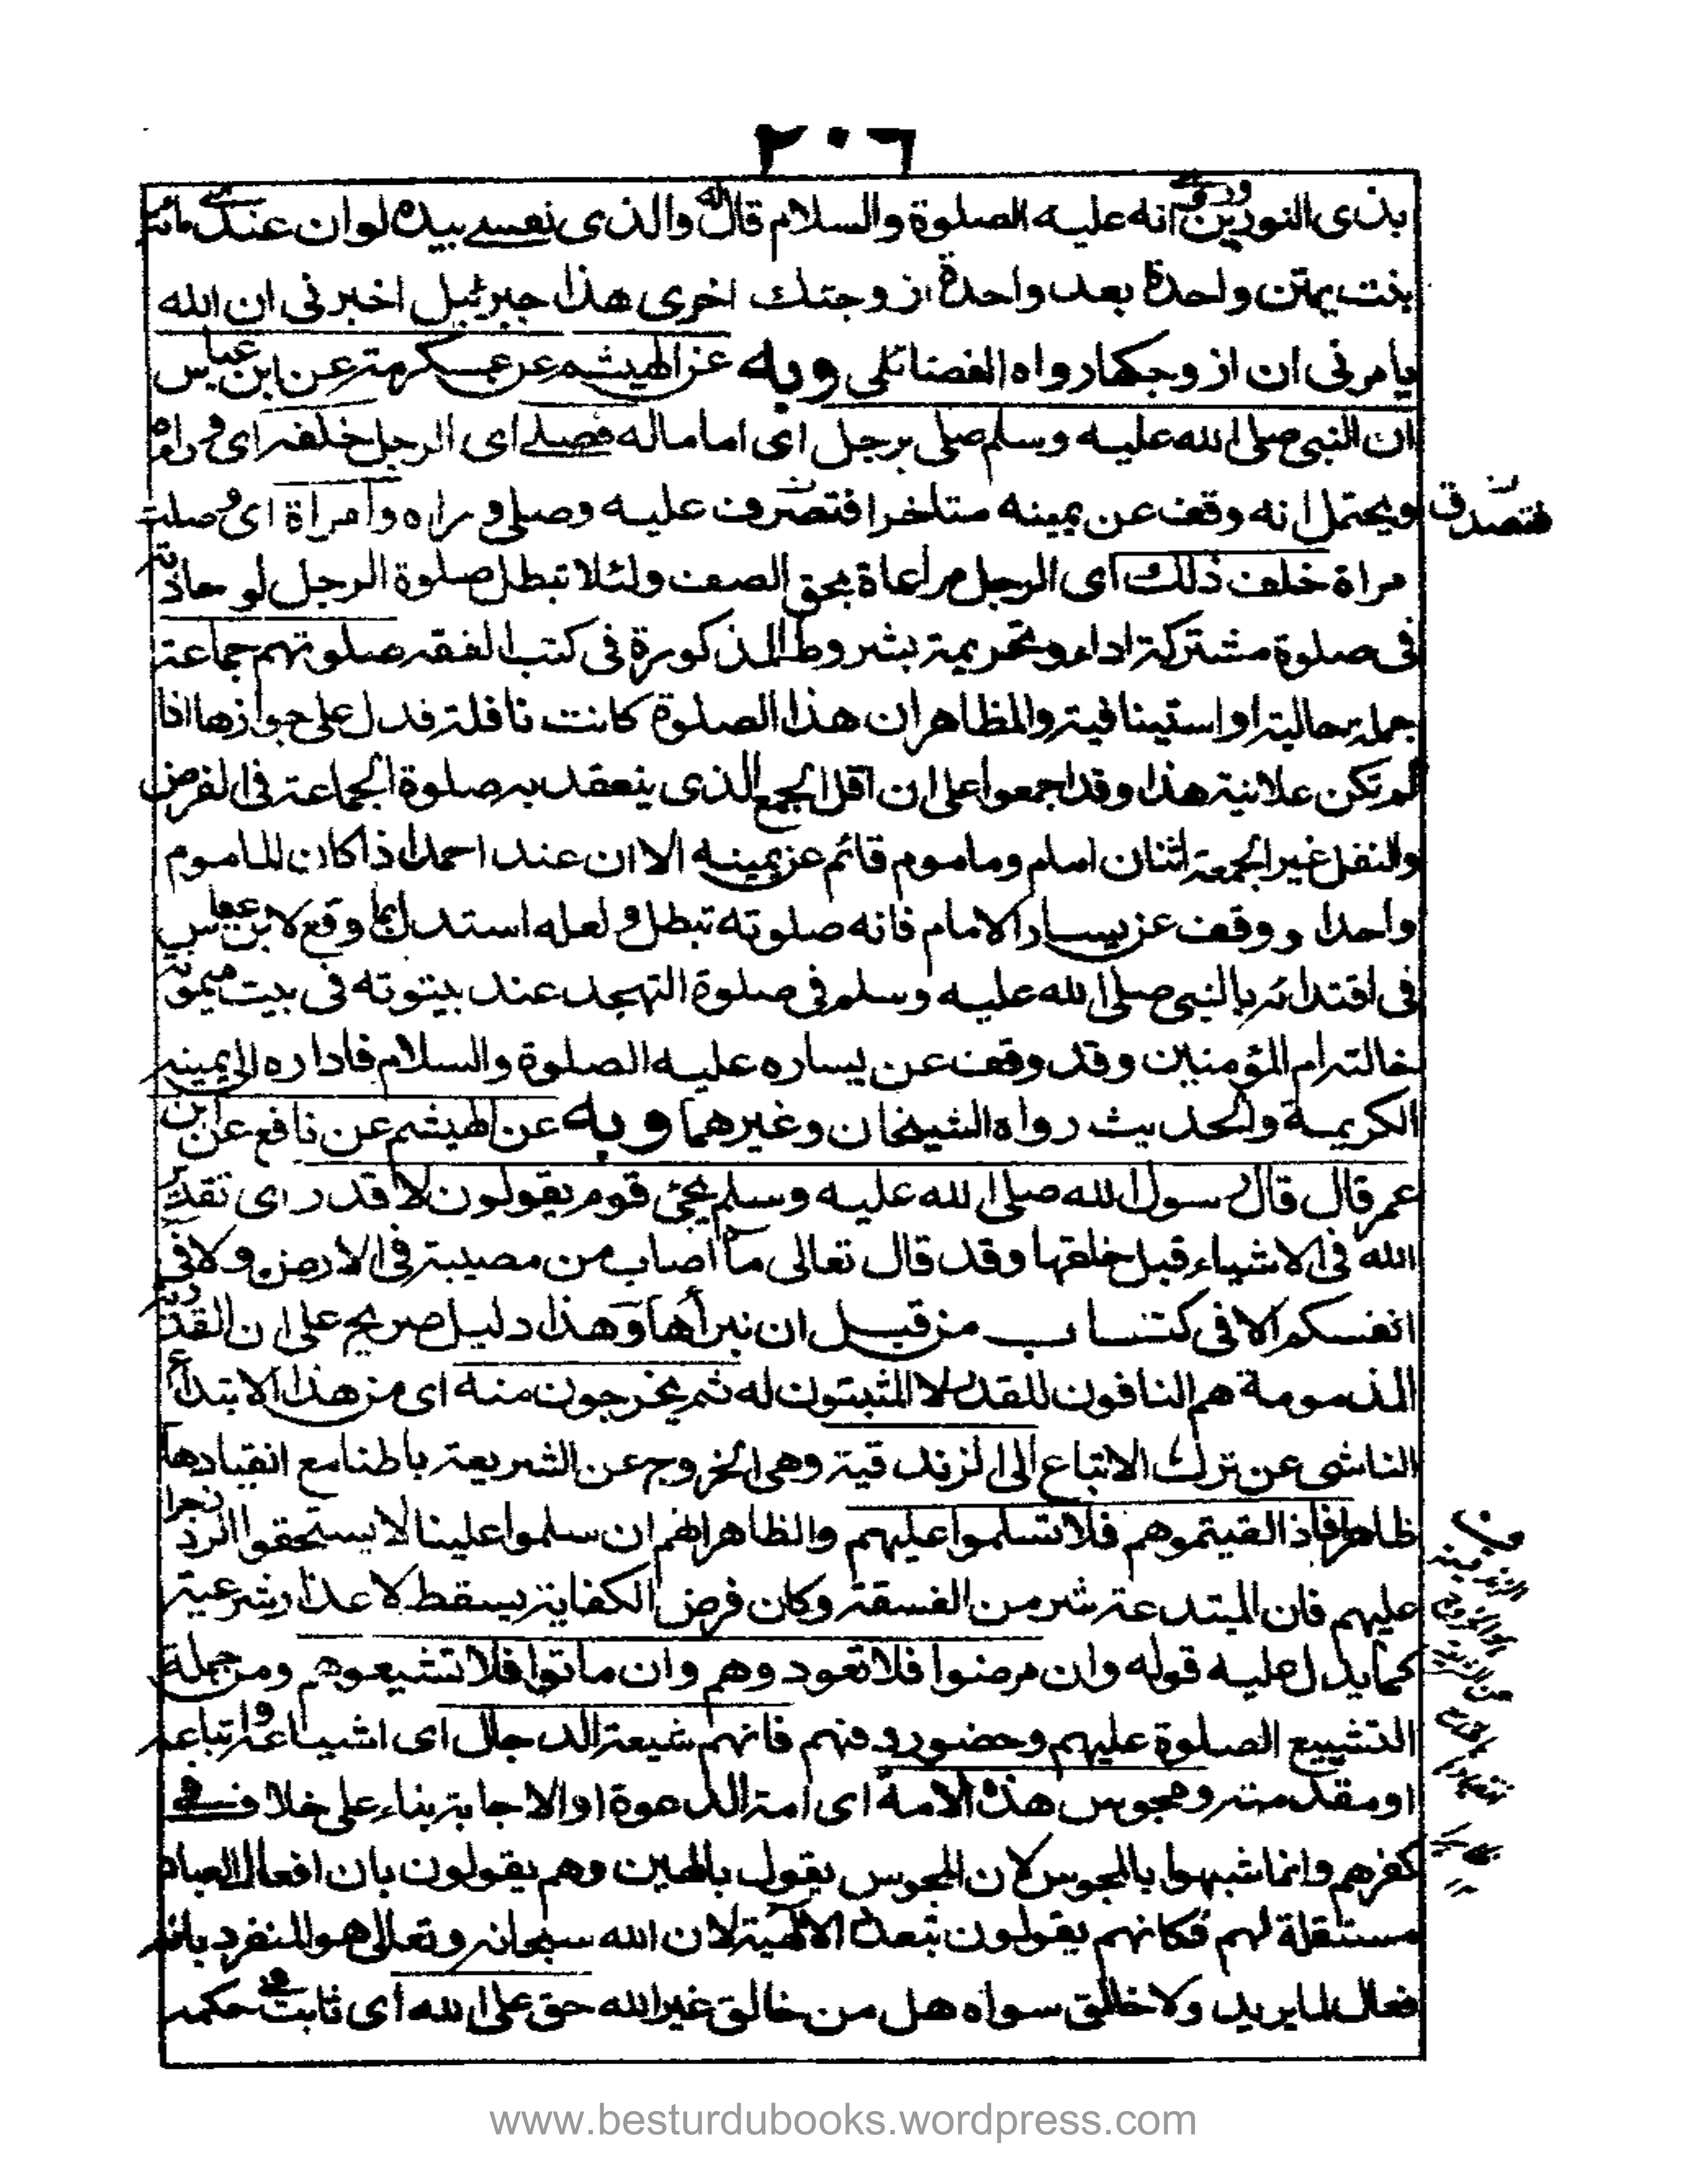 ٢٠٦
بذى النورين وروى انه عليه الصلوة والسلام قال له والذى نفسى بيده لوان عندى مائة
بنت يمتن واحدة بعد واحدة ازوجتك اخرى هذا جبرئيل اخبرنى ان الله
يامرنى ان ازوجكها رواه الفضائلى وبه عن الهيثم عن عكرمة عن ابن عباس
ان النبى صلى الله عليه وسلم صلى برجل اى اماما له فصلى اى الرجل خلفه اى وراه
ويحتمل انه وقف عن يمينه متاخرا فتصرف عليه وصلى وراه وامراة اى وصلت
فتصدق
مراة خلف ذلك اى الرجل مراعاة بحق الصف ولئلا تبطل صلوة الرجل لو حاذته
فى صلوة مشتركة اداء وتحريمة بشروط المذكورة فى كتب الفقه صلوتهم جماعة
جملة حالية او استينافية والمظاهر ان هذا الصلوة كانت نافلة فدل على جوازها اذا
لم تكن علانية هذا وقد اجمعوا على ان اقل الجمع الذى ينعقد به صلوة الجماعة فى الفرض
والنفل غير الجمعة اثنان امام وماموم قائم عن يمينه الا ان عند احمد اذا كان الماموم
واحدا ووقف عن يسار الامام فانه صلوته تبطل ولعله استدل بما وقع لابن عباس
فى اقتدائه بالنبى صلى الله عليه وسلم فى صلوة التهجد عند بيتوته فى بيت ميمونة
خالته ام المؤمنين وقد وقف عن يساره عليه الصلوة والسلام فاداره الى يمينه
الكريمة والحديث رواه الشيخان وغيرهما وبه عن الهيثم عن نافع عن ابن
عمر قال قال رسول الله صلى الله عليه وسلم يجئ قوم يقولون لا قدر اى تقدير
الله فى الاشياء قبل خلقها وقد قال تعالى ما اصاب من مصيبة فى الارض ولا فى
انفسكم الا فى كتاب من قبل ان نبرأها وهذا دليل صريح على ان القدرية
المذمومة هم النافون للقدر لا المثبتون له ثم يخرجون منه اى من هذا الابتداع
الناشى عن ترك الاتباع الى الزندقية وهى الخروج عن الشريعة باطنا مع انقيادها
ظاهرا فاذا لقيتموهم فلا تسلموا عليهم والظاهر انهم ان سلموا علينا لا يستحقوا الرد زجرا
عليهم فان المبتدعة شر من الفسقة وكان فرض الكفاية يسقط لاعذار شرعية
كما يدل عليه قوله وان مرضوا فلا تعودوهم وان ماتوا فلا تشيعوهم ومن جملة
التشييع الصلوة عليهم وحضور دفنهم فانهم شيعة الدجال اى اشياعه واتباعه
او مقدمته ومجوس هذه الامة اى امة الدعوة او الاجابة بناء على خلاف فى
كفرهم وانما شبهوا بالمجوس لان المجوس يقول بالهين وهم يقولون بان افعال العباد
مستقلة لهم فكانهم يقولون بتعدد الالهية لان الله سبحانه وتعالى هو المنفرد بانه
فعال لما يريد ولا خالق سواه هل من خالق غير الله حق على الله اى ثابت فى حكمه
www.besturdubooks.wordpress.com